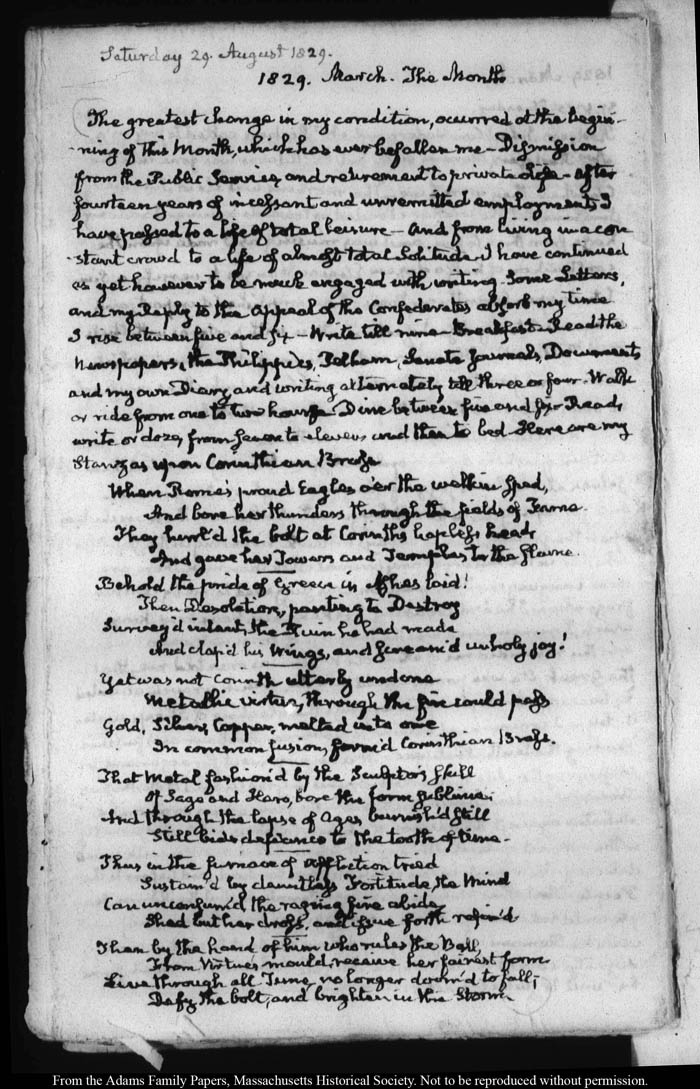 Saturday 29. August 1829.
1829. March. The Month
The greatest change in my condition, occurred at the begin-
-ning of this Month, which has ever befallen me — Dismission
from the Public Service, and retirement to private Life — After
fourteen years of incessant and unremitted employment, I
have passed to a life of total leisure — And from living in a con-
-stant crowd to a life of almost total Solitude. I have continued
as yet however to be much engaged with writing. Some Letters,
and my Reply to the Appeal of the Confederates absorb my time
I rise between five and six — Write till nine — Breakfast — Read the
Newspapers, the Philippics, Pelham, Senate Journals, Documents
and my own Diary, and writing alternately till three or four. Walk
or ride from one to two hours — Dine between five and six — Read,
write or doze, from seven to eleven and then to bed. Here are my
Stanzas upon Corinthian Brass
When Rome's proud Eagles o'er the welkin sped,
And bore her thunders through the fields of Fame.
They hurl'd the bolt at Corinth's hapless head
And gave her Towers and Temples to the flame.
Behold the pride of Greece in Ashes laid!
Then Desolation, panting to Destroy
Survey'd intent, the Ruin he had made
And clap'd his Wings, and scream'd unholy joy!
Yet was not Corinth utterly undone
Metallic virtue, through the fire could pass
Gold, Silver, Copper, melted into one
In common fusion, form'd Corinthian Brass.
That Metal fashion'd by the Sculptor's skill
Of Sage and Hero, bore the form sublime;
And through the lapse of Ages burnish'd still
Still bids defiance to the tooth of time.
Thus in the furnace of affliction tried
Sustain'd by dauntless Fortitude, the Mind
Can unconsum'd the raging fire abide
Shed but her dross, and issue forth refin'd
Then by the hand of him who rules the Ball,
From Virtue's mould, receive her fairest form
Live through all Time, no longer doom'd to fall,
Defy the bolt, and brighten in the Storm
From the Adams Family Papers, Massachusetts Historical Society. Not to be reproduced without permission.